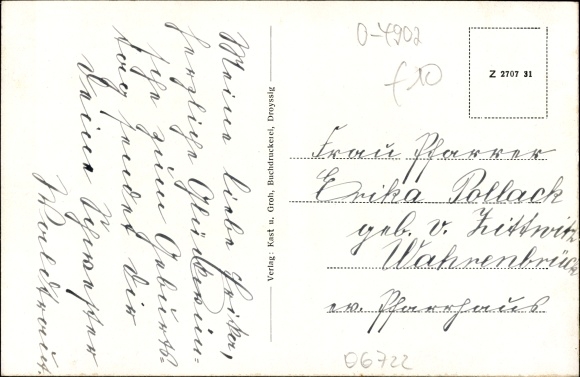 Meine liebe Erika,
herzliche Glückwün-
sche zum Geburts-
tag sendet dir
Deine Schwester
Waldtraut.
Verlag: Kast u. Grob, Buchdruckerei, Droyssig
O-4902
f 10
Z 2707 31
Frau Pfarrer
Erika Pollack
geb. v. Zittwitz
Wahrenbrück
ev. Pfarrhaus
06722